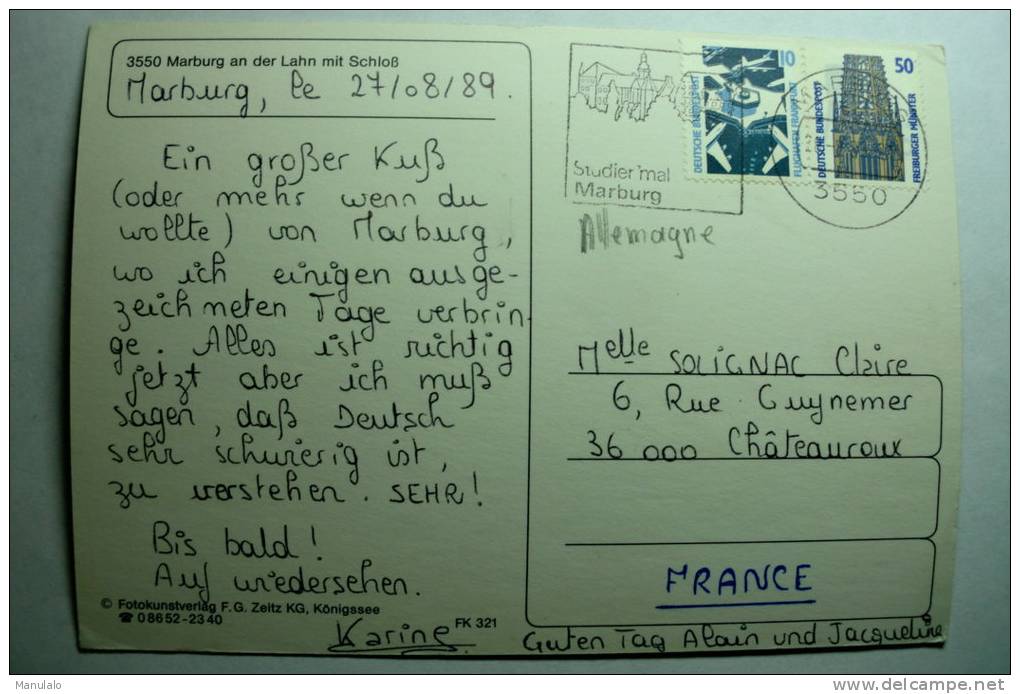 3550 Marburg an der Lahn mit Schloß
Marburg, le 27/08/89.
Ein großer Kuß
(oder mehr wenn du
wollte) von Marburg,
wo ich einigen ausge-
zeichneten Tage verbrin-
ge. Alles ist richtig
jetzt aber ich muß
sagen, daß Deutsch
sehr schwierig ist,
zu verstehen. SEHR!
Bis bald!
Auf wiedersehen.
© Fotokunstverlag F.G. Zeitz KG, Königssee
☎ 08652-2340
FK 321
Karine
Studier mal
Marburg
10
DEUTSCHE BUNDESPOST
FLUGHAFEN FRANKFURT
50
DEUTSCHE BUNDESPOST
FREIBURGER MÜNSTER
3550
Allemagne
Melle SOLIGNAC Claire
6, Rue Guynemer
36000 Châteauroux
FRANCE
Guten Tag Alain und Jacqueline
Manulalo
delcampe.net